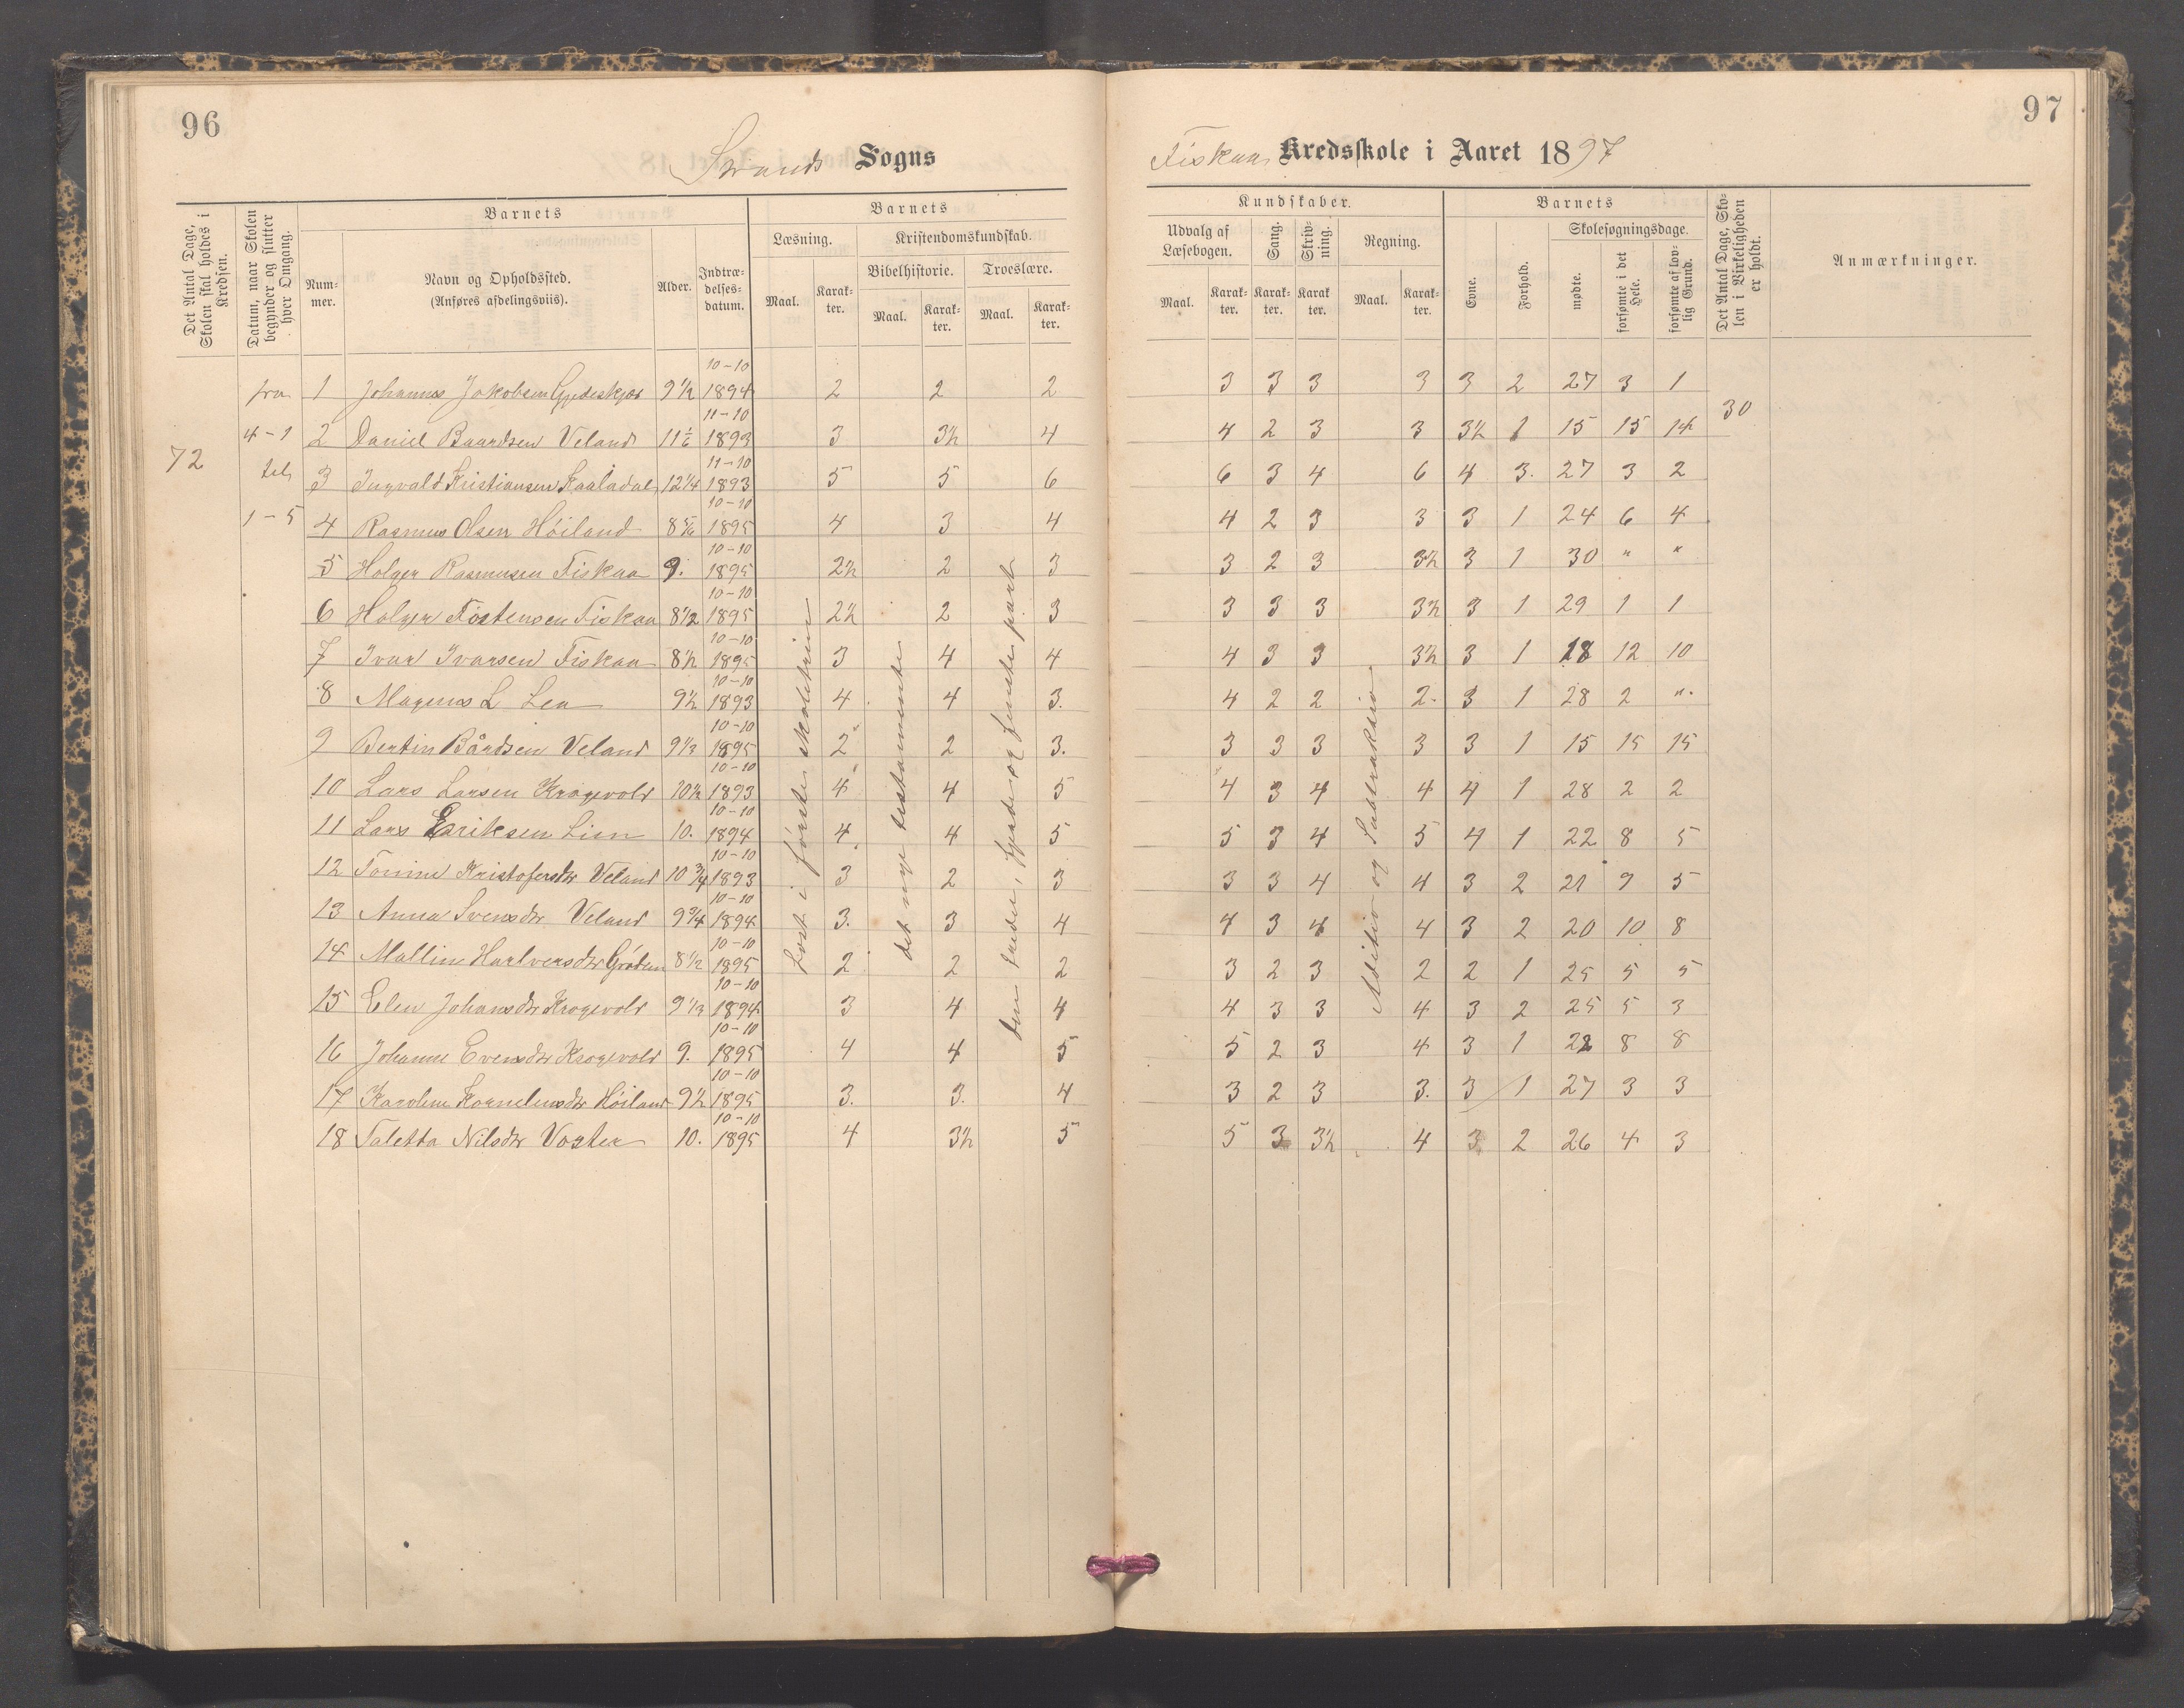 96
Strands Sogns
Det Antal Dage, Skolen skal holdes i Kredsen.
Datum, naar Skolen begynder og slutter hver Omgang.
Barnets
Num-mer.
Navn og Opholdssted.
(Anføres afdelingsviis).
Alder.
Indtræ-delses-datum.
Barnets
Læsning.
Kristendomskundskab.
Bibelhistorie.
Troeslære.
Maal. Karak-ter. Maal. Karak-ter. Maal. Karak-ter.
72
fra
4-1
til
1-5
10-10
1 Johannes Jakobsen 9 1/2 1894 2 2 2
11-10
2 Daniel Baardsen Veland 11 1/6 1893 3 3½ 4
11-10
3 Ingvald Kristiansen Kaaladal 12 1/4 1893 5 5 6
10-10
4 Rasmus Olsen Høiland 8 5/6 1895 4 3 4
10-10
5 Holger Rasmussen Fiskaa 9. 1895 2½ 2 3
10-10
6 Holger Tostensen Fiskaa 8 1/2 1895 2½ 2 3
10-10
7 Ivar Ivarsen Fiskaa 8 1/2 1895 3 4 4
10-10
8 Magnus L Lea 9½ 1893 4 4 3.
10-10
9 Bertin Bårdsen Veland 9 1/3 1895 2 2 3.
10-10
10 Lars Larsen Krogevold 10½ 1893 4 4 5
10-10
11 Lars Eriksen Lien 10. 1894 4 4 5
10-10
12 Tomine Kristofersdtr Veland 10 3/4 1893 3 2 3
10-10
13 Anna Svensdtr Veland 9 3/4 1894 3. 3 4
10-10
14 Mallin 8 1/2 1895 2 2 2
10-10
15 Elen Johansdtr Krogevold 9 1/3 1894 3 4 4
10-10
16 Johanne Evensdtr Krogevold 9. 1895 4 4 5
10-10
17 Karoline Kornelensdtr Høiland 9½ 1895 3. 3. 4
10-10
18 Taletta Nilsdtr Voster 10. 1895 4 3½ 5
Læst i første skoletrin
det nye testamente
den tredie, fjerde og femte part
97
Fiskaa Kredsskole i Aaret 1897
Kundskaber.
Udvalg af Læsebogen.
Sang.
Skriv-ning.
Regning.
Maal. Karak-ter. Karak-ter. Karak ter. Maal. Karak-ter.
Barnets
Evne.
Forhold.
Skolesøgningsdage.
mødte.
forsømte i det Hele.
forsømte af lov-lig Grund.
Det Antal Dage, Sko-len i Virkeligheden er holdt.
Anmærkninger.
3 3 3 3 3 2 27 3 1
30
4 2 3 3 3½ 1 15 15 14
6 3 4 6 4 3. 27 3 2
4 2 3 3 3 1 24 6 4
3 2 3 3½ 3 1 30 " "
3 3 3 3½ 3 1 29 1 1
4 3 3 3½ 3 1 18 12 10
4 2 2 2. 3 1 28 2 ".
3 3 3 3 3 1 15 15 15
4 3 4 4 4 1 28 2 2
5 3 4 5 4 1 22 8 5
3 3 4 4 3 2 21 9 5
4 3 4 4 3 2 20 10 8
3 2 3 2 2 1 25 5 5
4 3 3 4 3 2 25 5 3
5 2 3 4 3 1 22 8 8
3 2 3 3. 3 1 27 3 3
5 3 3½ 4 3 2 26 4 3
Adition og Subtraktion